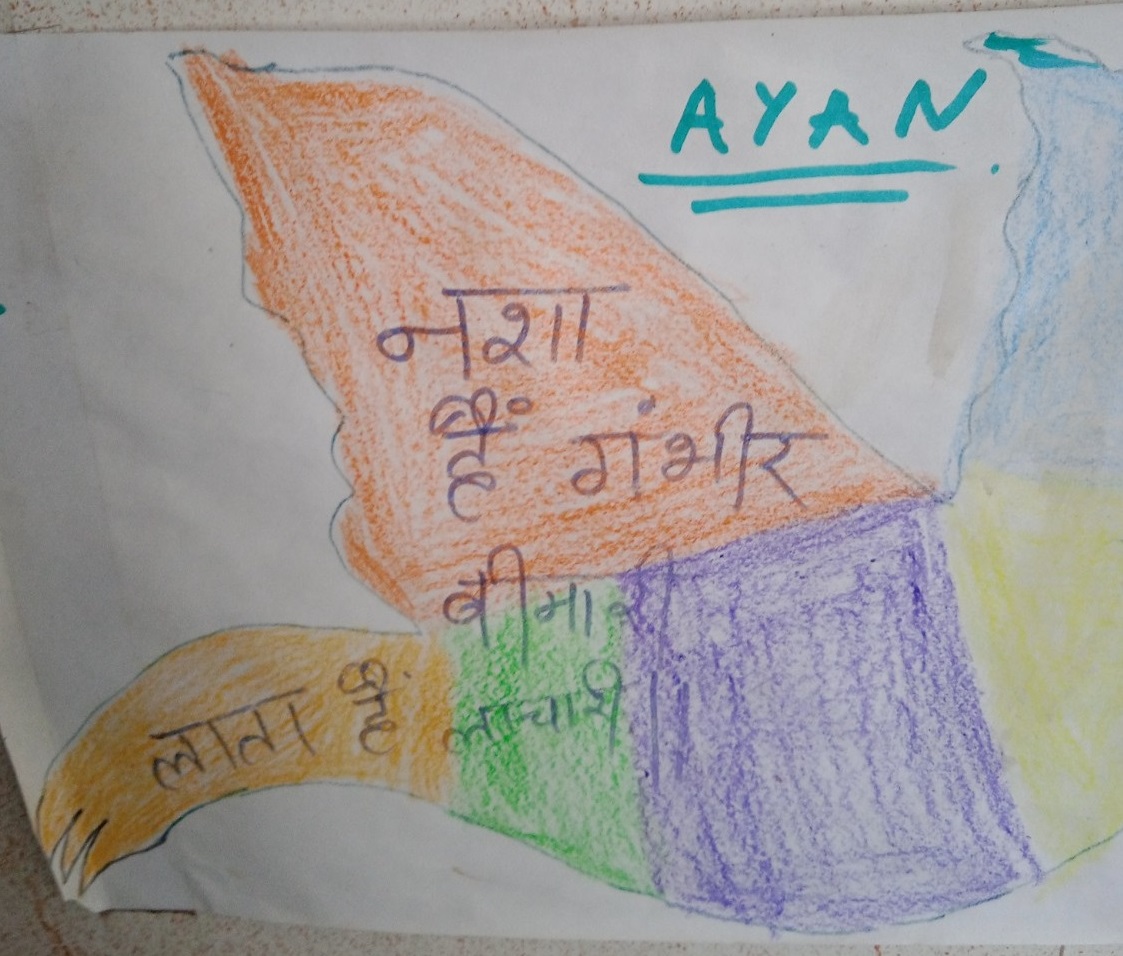 AYAN
नशा
हैं गंभीर
बीमारी
लाता हैं लाचारी।।